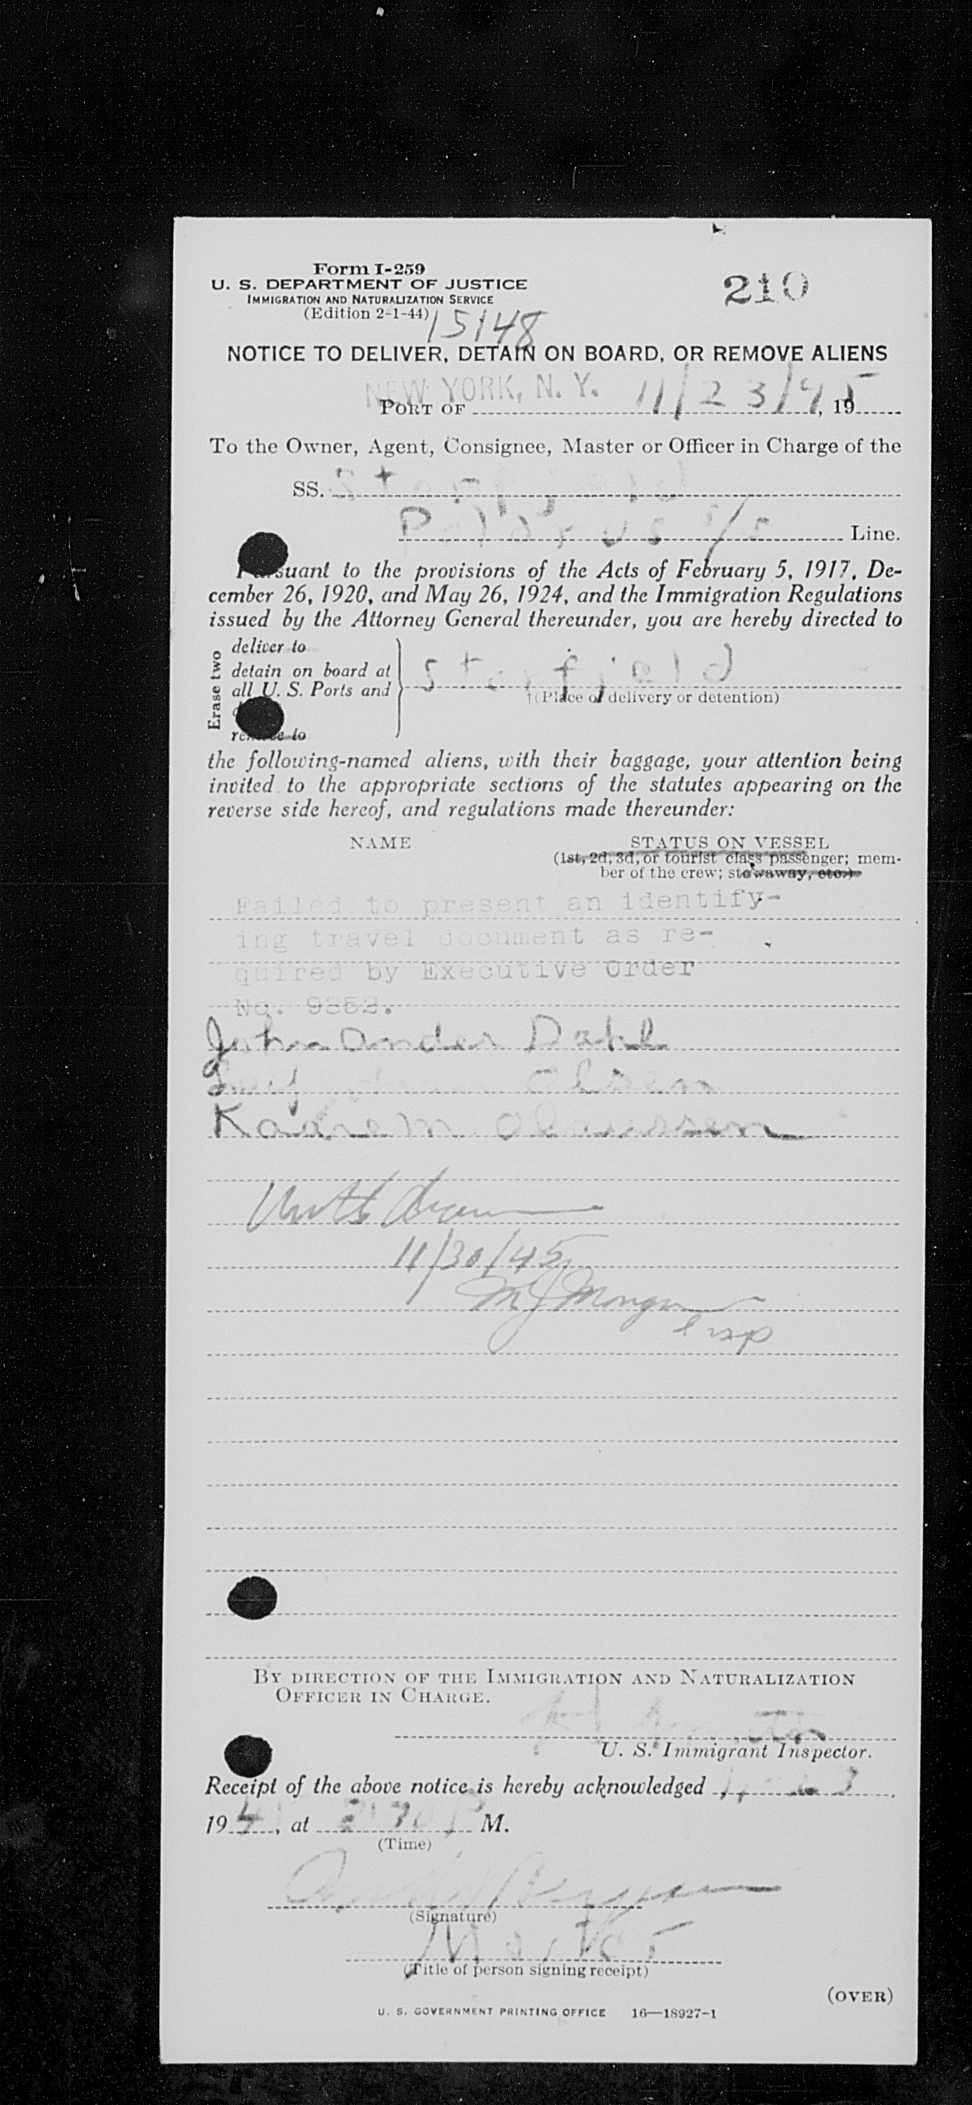 Form I-259
U. S. DEPARTMENT OF JUSTICE
IMMIGRATION AND NATURALIZATION SERVICE
(Edition 2-1-44)
210
15148
NOTICE TO DELIVER, DETAIN ON BOARD, OR REMOVE ALIENS
NEW YORK, N. Y.
PORT OF 11/23/45, 19
To the Owner, Agent, Consignee, Master or Officer in Charge of the
SS.
s/s Line.
Pursuant to the provisions of the Acts of February 5, 1917, De-
cember 26, 1920, and May 26, 1924, and the Immigration Regulations
issued by the Attorney General thereunder, you are hereby directed to
Erase two
deliver to
detain on board at
all U. S. Ports and
remove to
Storfjeld
(Place of delivery or detention)
the following-named aliens, with their baggage, your attention being
invited to the appropriate sections of the statutes appearing on the
reverse side hereof, and regulations made thereunder:
NAME
STATUS ON VESSEL
(1st, 2d, 3d, or tourist class passenger; mem-
ber of the crew; stowaway, etc.)
Failed to present an identify-
ing travel document as re-
quired by Executive Order
No. 9352.
John Ander Dahl
Leif Olsen
Kaare M.
11/30/45
M J Morgan
Insp
BY DIRECTION OF THE IMMIGRATION AND NATURALIZATION
OFFICER IN CHARGE.
U. S. Immigrant Inspector.
Receipt of the above notice is hereby acknowledged
194, at M.
(Time)
(Signature)
Master
(Title of person signing receipt)
(OVER)
U. S. GOVERNMENT PRINTING OFFICE 16—18927-1